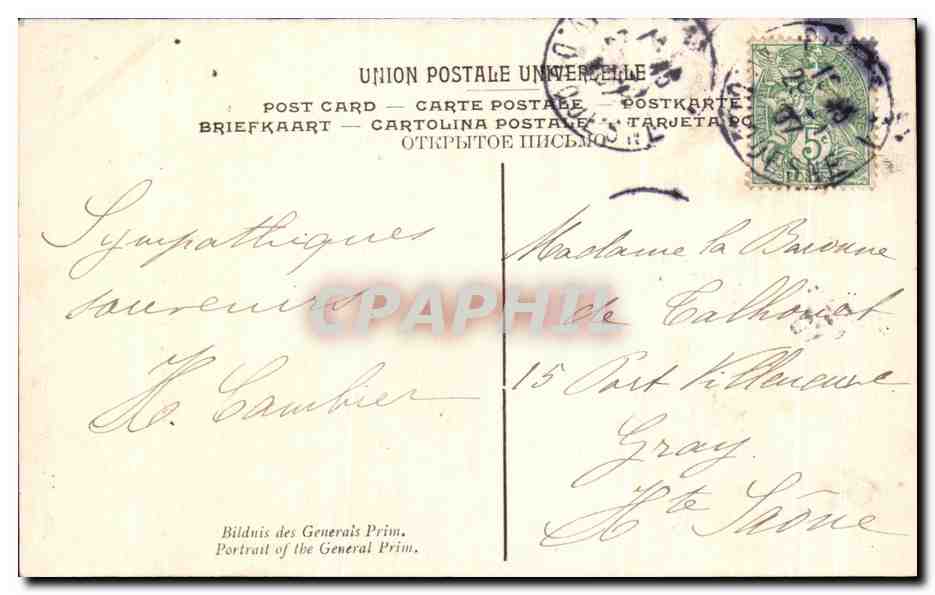 UNION POSTALE UNIVERSELLE
POST CARD — CARTE POSTALE — POSTKARTE
BRIEFKAART — CARTOLINA POSTALE — TARJETA
ОТКРЫТОЕ ПИСЬМО
5c
Sympathiques
souvenirs
H. Cambier
Madame la Baronne
de Talhouët
15 Port Villeneuve
Gray
Hte Saône
CPAPHIL
Bildnis des Generals Prim.
Portrait of the General Prim.